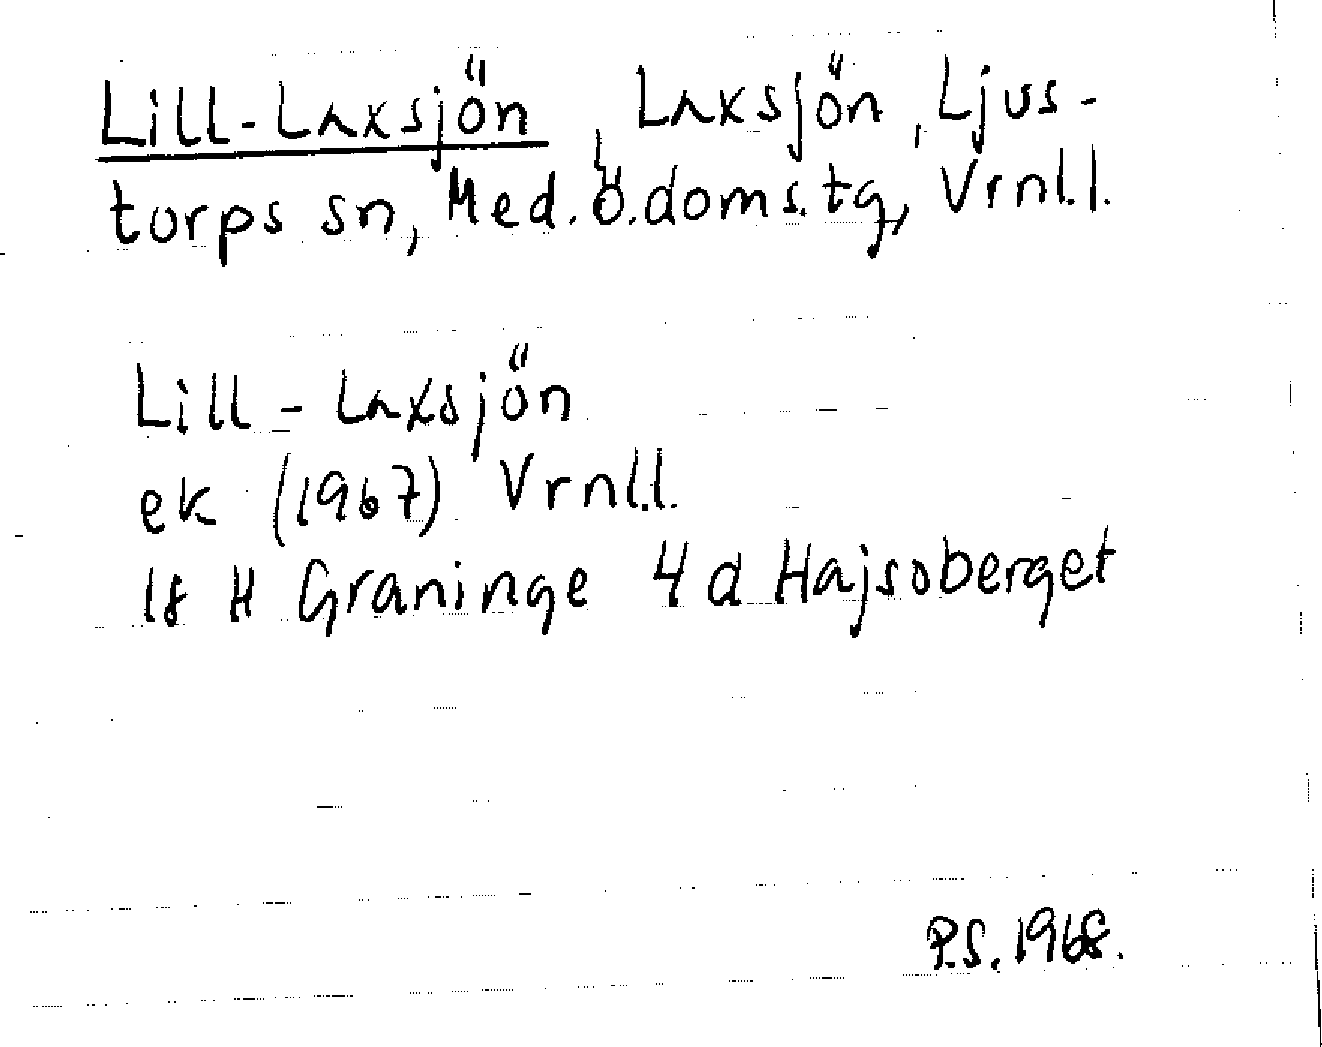 Lill-Laxsjön, Laxsjön, Ljus-
torps sn, Med. ö. doms. tg, Vrnl.l.
Lill-Laxsjön
ek (1967) Vrnl.l.
18 H Graninge 4 d Hajsoberget
P.S. 1968.